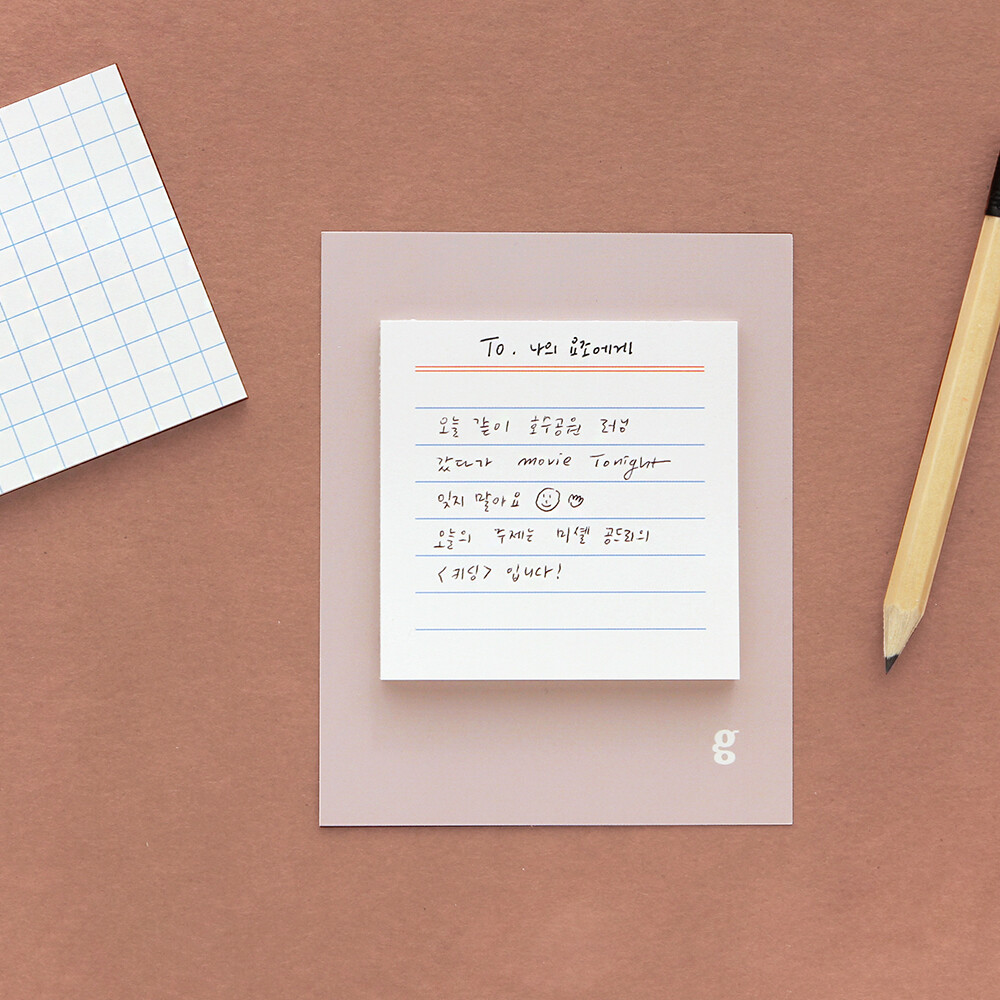 To. 나의 요조에게
오늘 같이 호수공원 러닝
갔다가 movie Tonight
잊지 말아요
오늘의 주제는 미셸 공드리의
<키딩> 입니다!
g